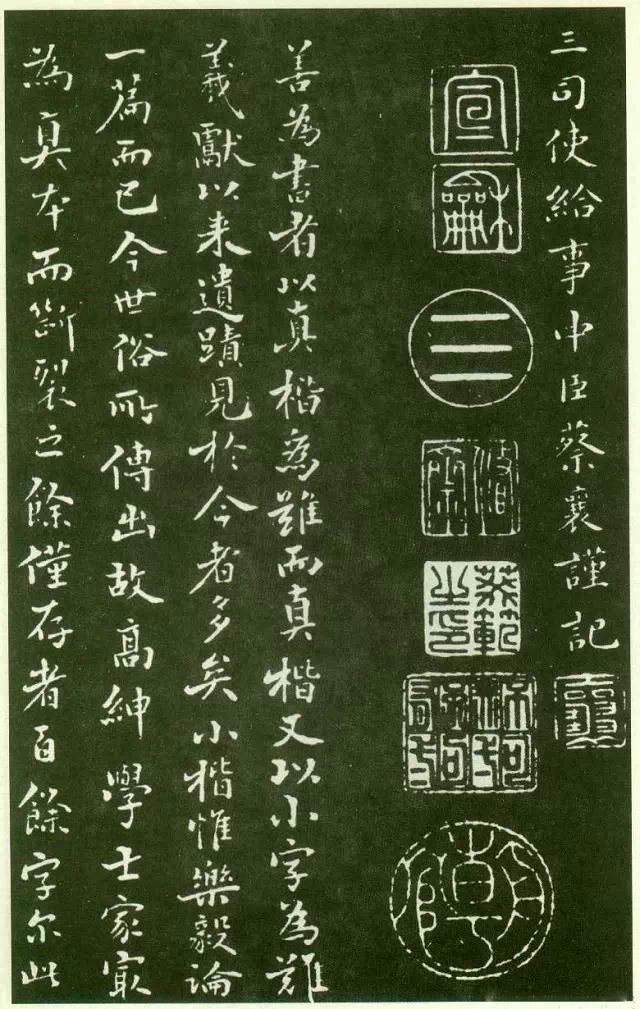 三司使給事中臣蔡襄謹記
宣
龢
善為書者以真楷為難而真楷又以小字為難
羲獻以来遺蹟見於今者多矣小楷惟樂毅論
一篇而已今世俗所傳出故高紳學士家㝡
為真本而斷裂之餘僅存者百餘字尔此